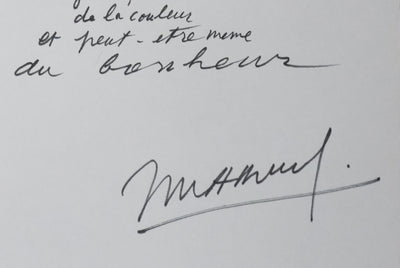 de la couleur
et peut-etre meme
du bonheur